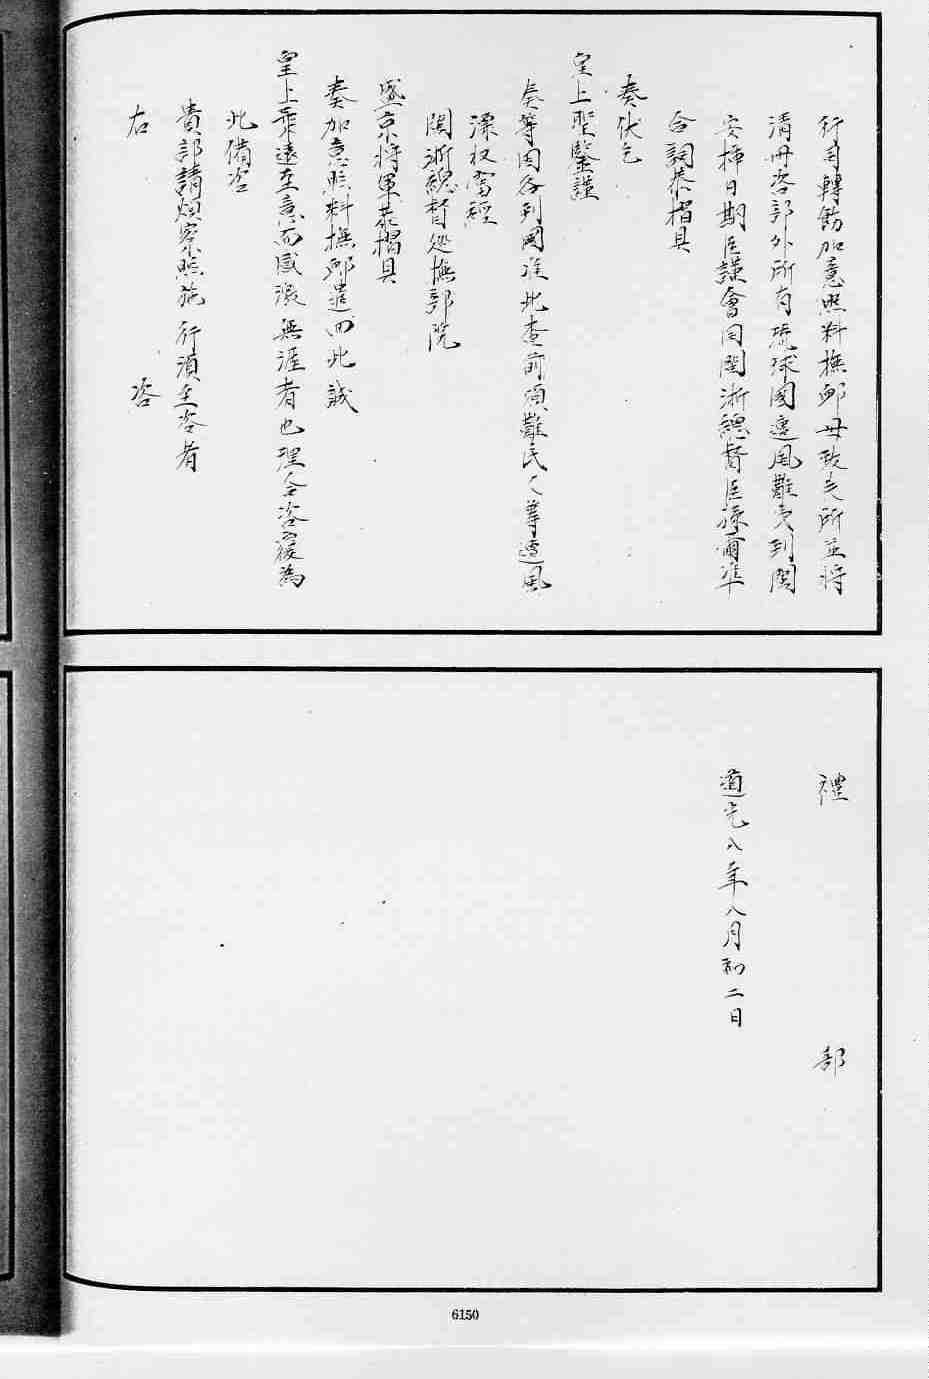 行司轉飭加意照料撫卹毋致失所並將
清册咨部外所有琉球國遭風難夷到閩
安插日期臣謹會同閩浙總督臣孫爾準
合詞恭摺具
奏伏乞
皇上聖鑒謹
奏等因各到國准此查前項難民人等遭風
漂收當經
閩浙總督処撫部院
盛京將軍恭摺具
奏加意照料撫卹遣回此誠
皇上柔遠至意而感激無涯者也理合咨覆為
此備咨
貴部請煩察照施行須至咨者
右 咨
禮 部
道光八年八月初二日
6150